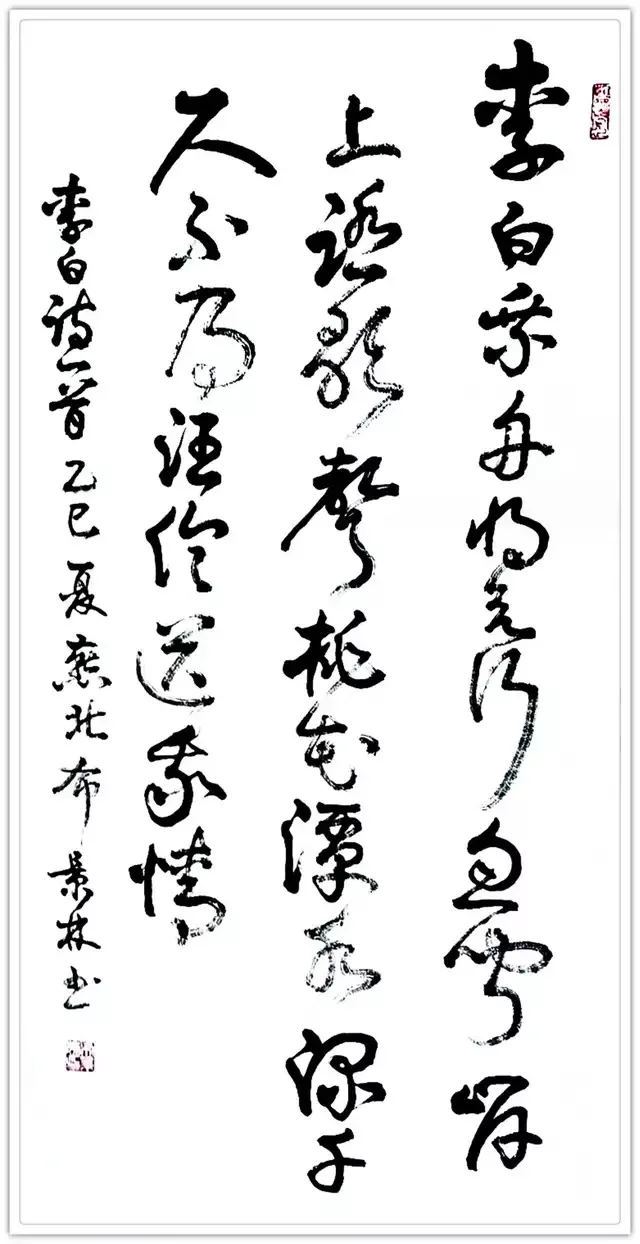 李白乘舟将欲行忽闻岸
上踏歌聲桃花潭水深千
尺不及汪伦送我情
李白诗一首乙巳夏燕北布景林书